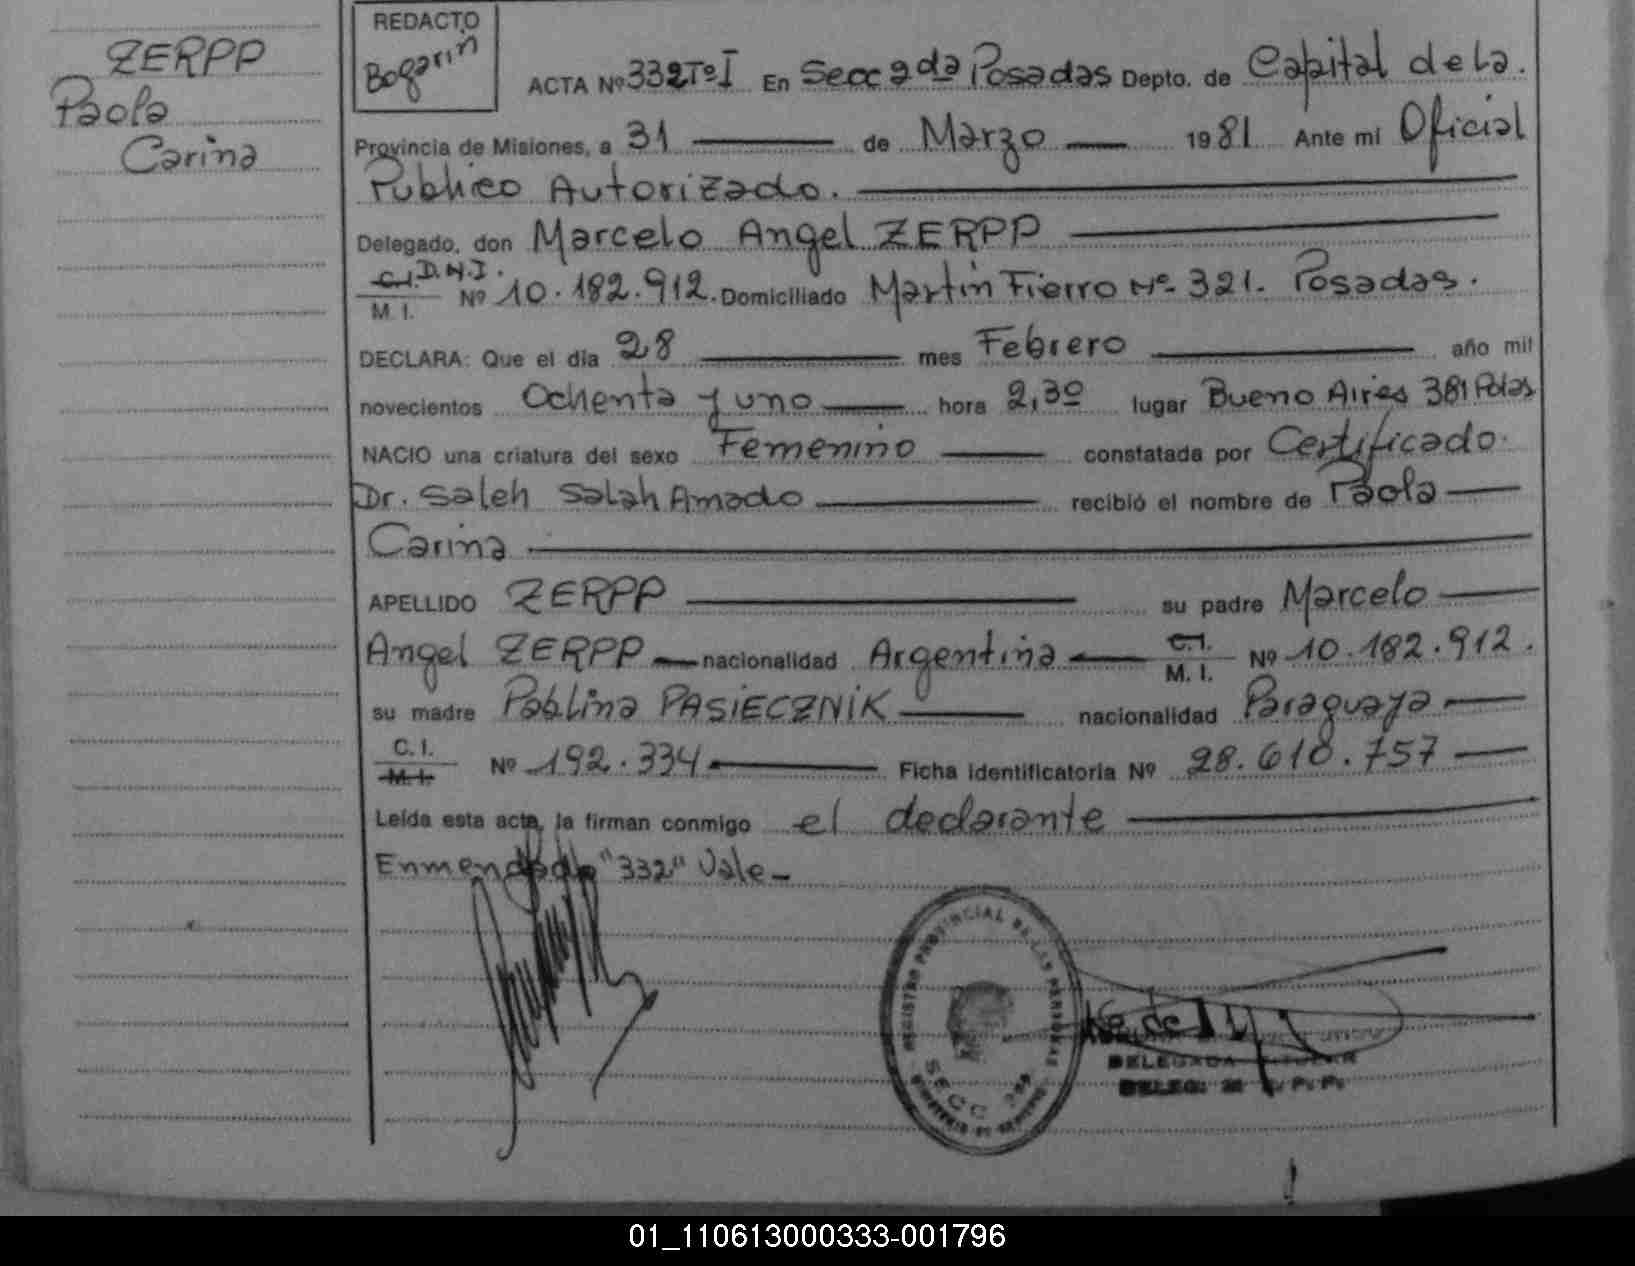 ZERPP
Paola
Carina
REDACTO
Bogarin
ACTA Nº 332 Tº I En Secc 2da Posadas Depto. de Capital de la.
Provincia de Misiones, a 31 de Marzo 1981. Ante mi Oficial
Publico Autorizado.
Delegado, don Marcelo Angel ZERPP
C.I. D.N.I.
M. I. Nº 10.182.912. Domiciliado Martin Fierro Nº 321. Posadas.
DECLARA: Que el día 28 mes Febrero año mil
novecientos Ochenta y uno hora 2,30 lugar Bueno Aires 381 Pdas
NACIO una criatura del sexo Femenino constatada por Certificado.
Dr. Saleh Salah Amado recibió el nombre de Paola
Carina
APELLIDO ZERPP su padre Marcelo
Angel ZERPP nacionalidad Argentina C.I. M. I. Nº 10.182.912.
su madre Pablina PASIECZNIK nacionalidad Paraguaya
C. I. M. I. Nº 192.334 Ficha Identificatoria Nº 28.610.757
Leída esta acta, la firman conmigo el declarante
Enmendado "332" Vale
REGISTRO PROVINCIAL DE LAS PERSONAS
SECC 2da
DELEGADA
DELEG.
01_110613000333-001796